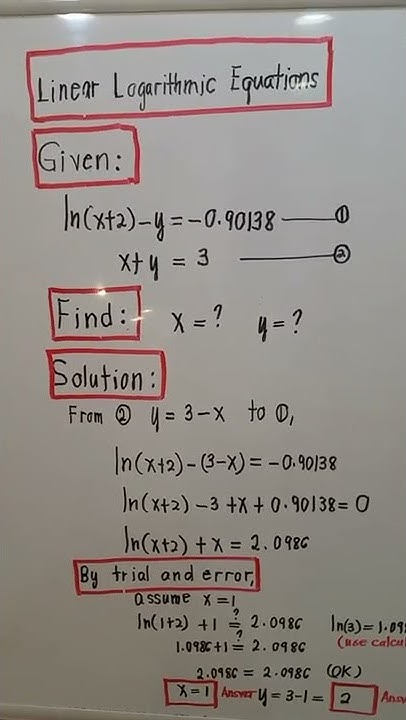 Linear Logarithmic Equations
Given:
ln(x+2)-y=-0.90138 ①
x+y = 3 ②
Find: x=? y=?
Solution:
From ② y=3-x to ①,
ln(x+2)-(3-x)=-0.90138
ln(x+2)-3+x+0.90138=0
ln(x+2)+x=2.0986
By trial and error,
assume x=1
ln(1+2)+1 ≟ 2.0986 ln(3)=1.09
1.0986+1 ≟ 2.0986 (use calcu
2.0986 = 2.0986 (OK)
x=1 Answer y=3-1= 2 Answ